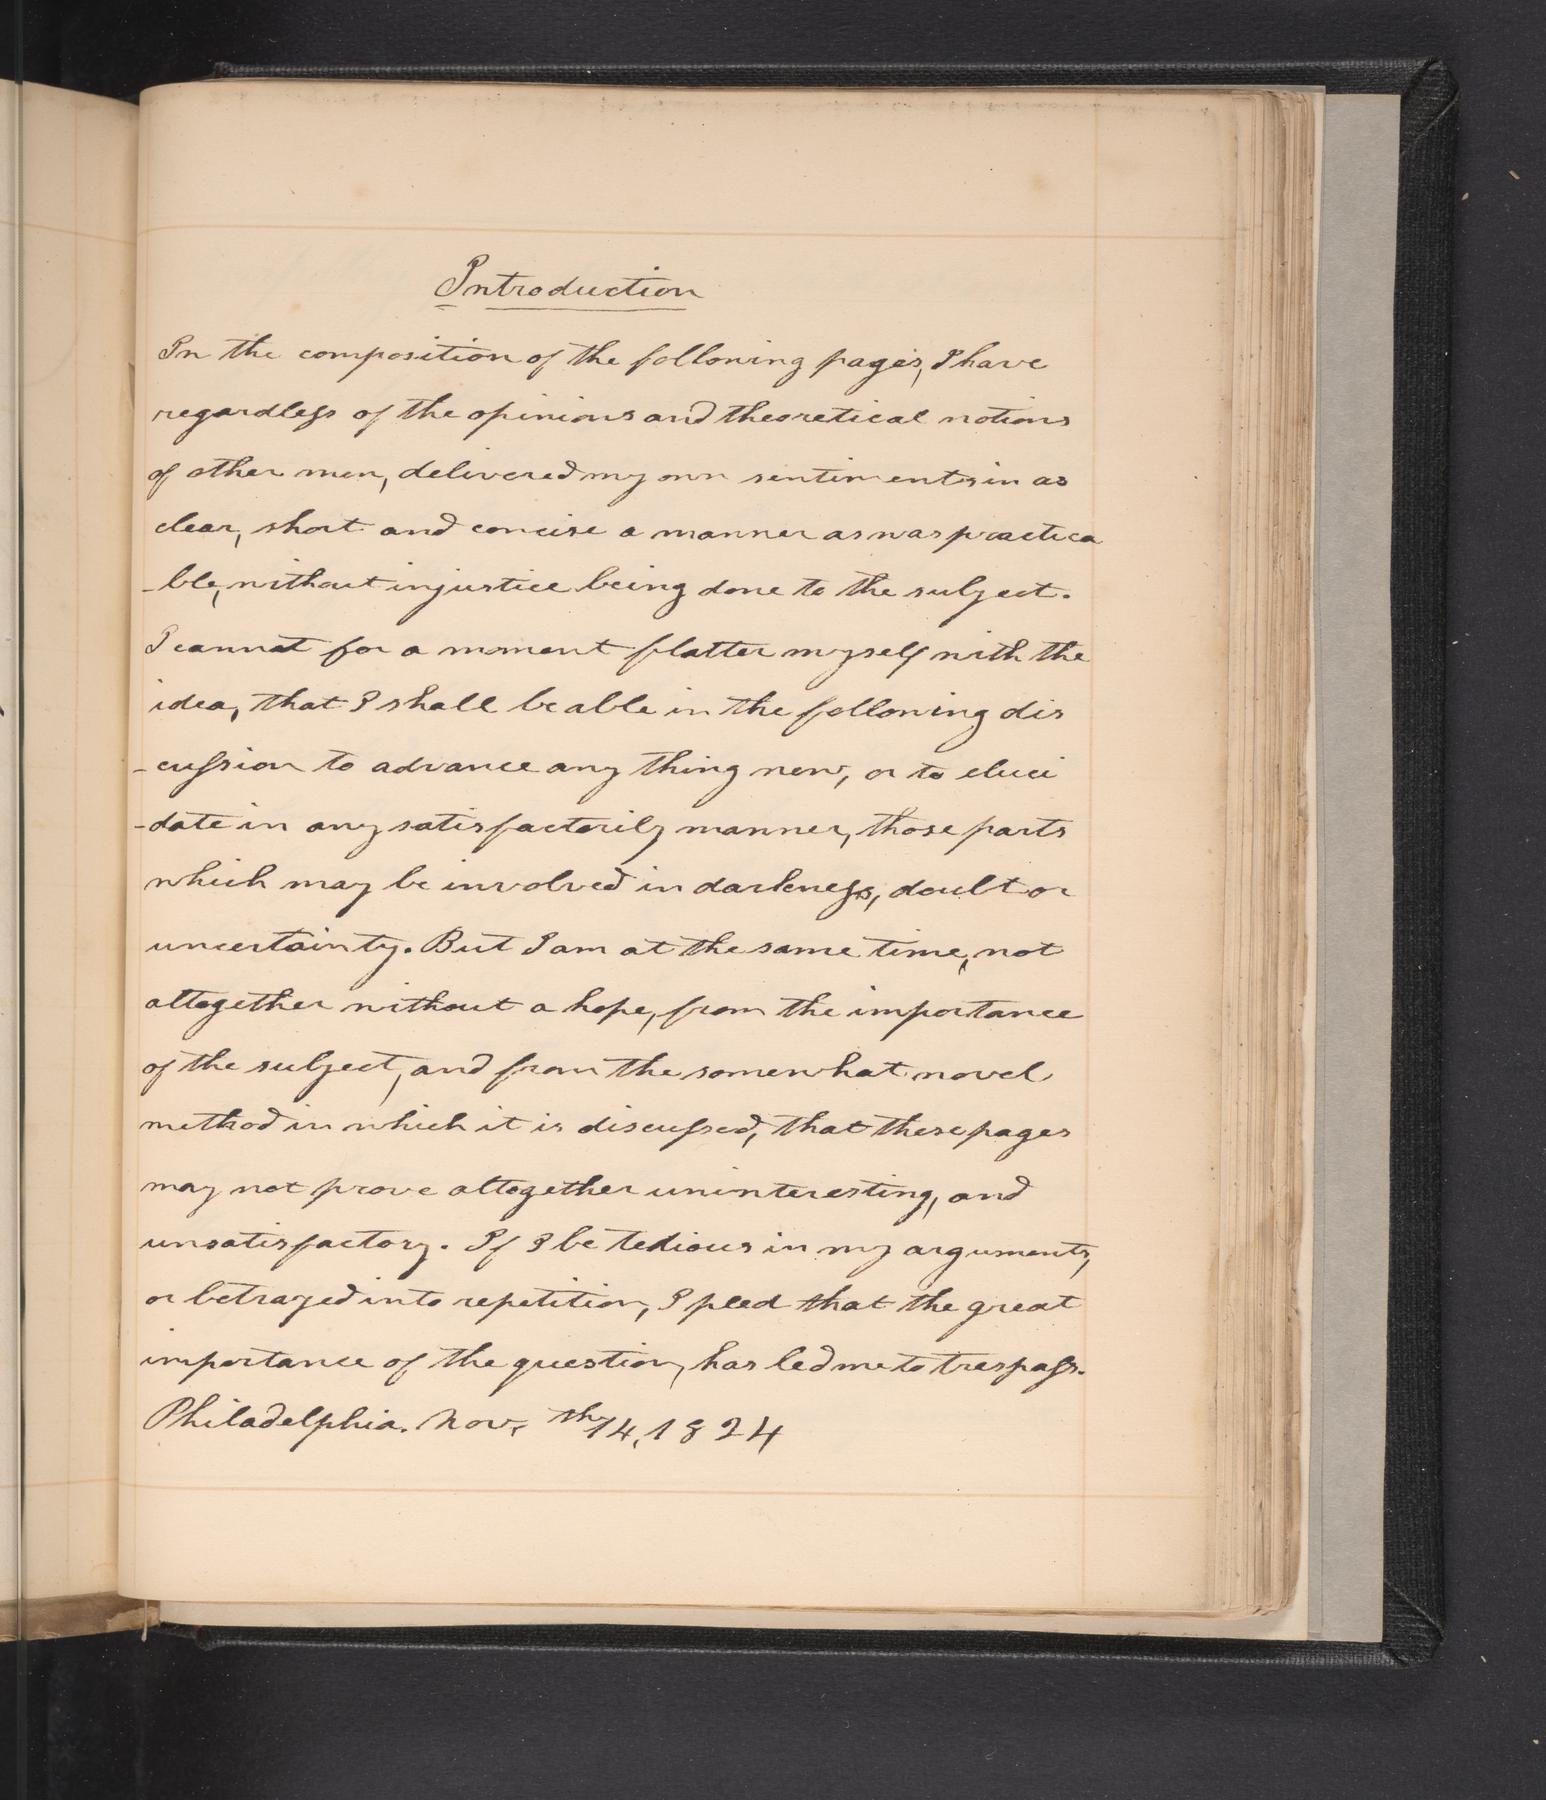 Introduction
In the composition of the following pages, I have
regardless of the opinions and theoretical notions
of other men, delivered my own sentiments in as
clear, short and concise a manner as was practica
-ble, without injustice being done to the subject.
I cannot for a moment flatter myself with the
idea, that I shall be able in the following dis
-cussion to advance any thing new, or to eluci
-date in any satisfactorily manner, those parts
which may be involved in darkness, doubt or
uncertainty. But I am at the same time, not
altogether without a hope, from the importance
of the subject, and from the somewhat novel
method in which it is discussed, that these pages
may not prove altogether uninteresting, and
unsatisfactory. If I be tedious in my arguments,
or betrayed into repetition, I plead that the great
importance of the question, has led me to trespass.
Philadelphia. Nov. th 14, 1824